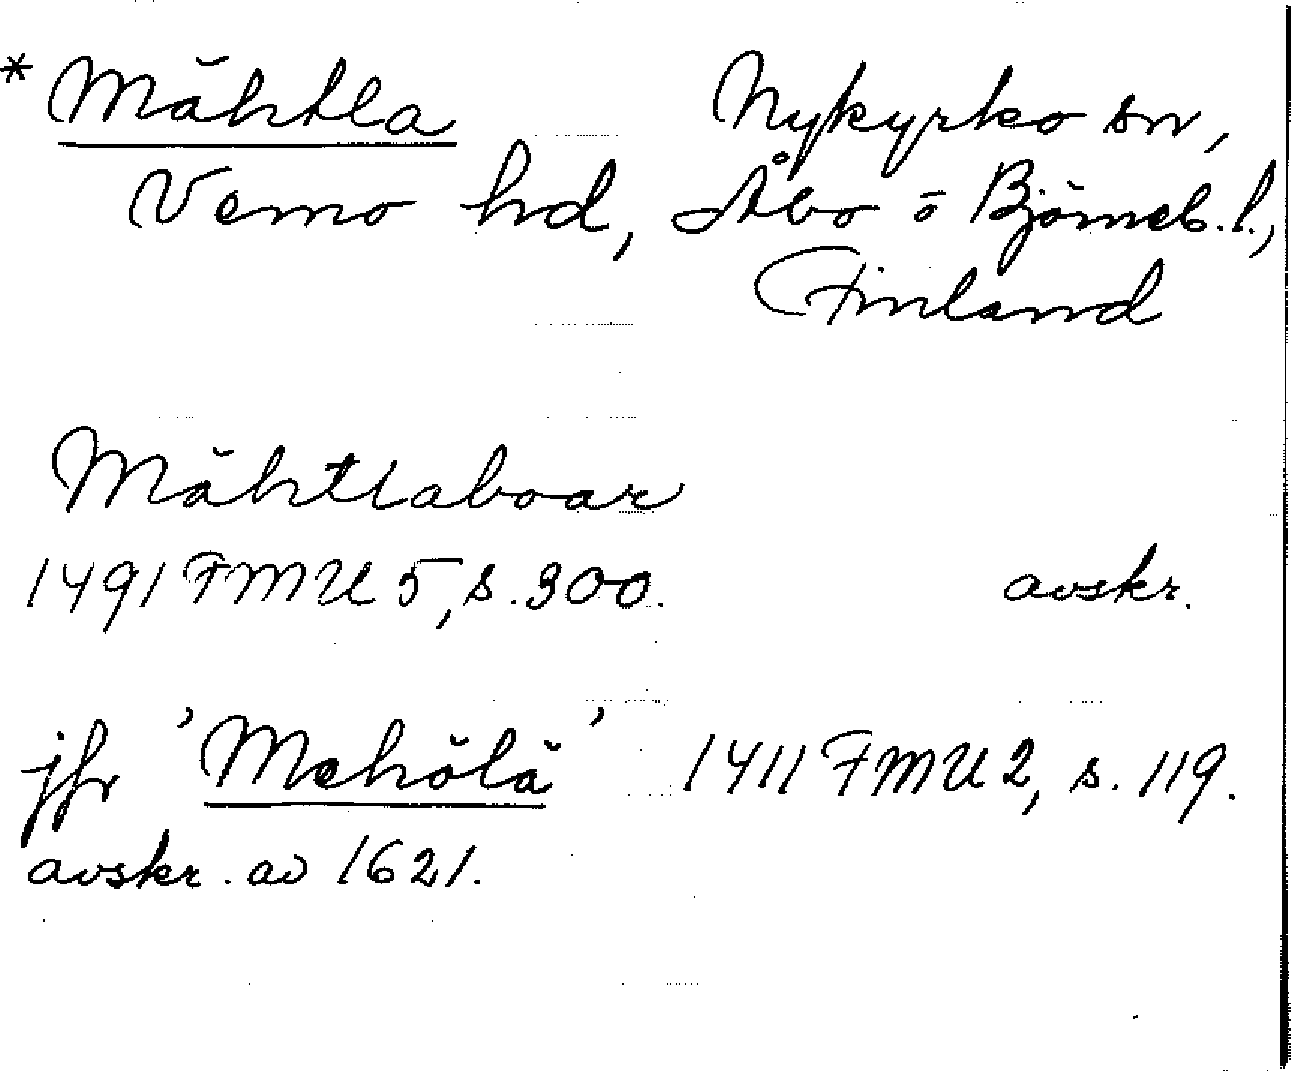 * Mähtla Nykyrko sn,
Vemo hd, Åbo o Björneb. l.,
Finland
Mähtlaboar
1491 FMU 5, s. 300. avskr.
jfr 'Mehölä' 1411 FMU 2, s. 119.
avskr. av 1621.